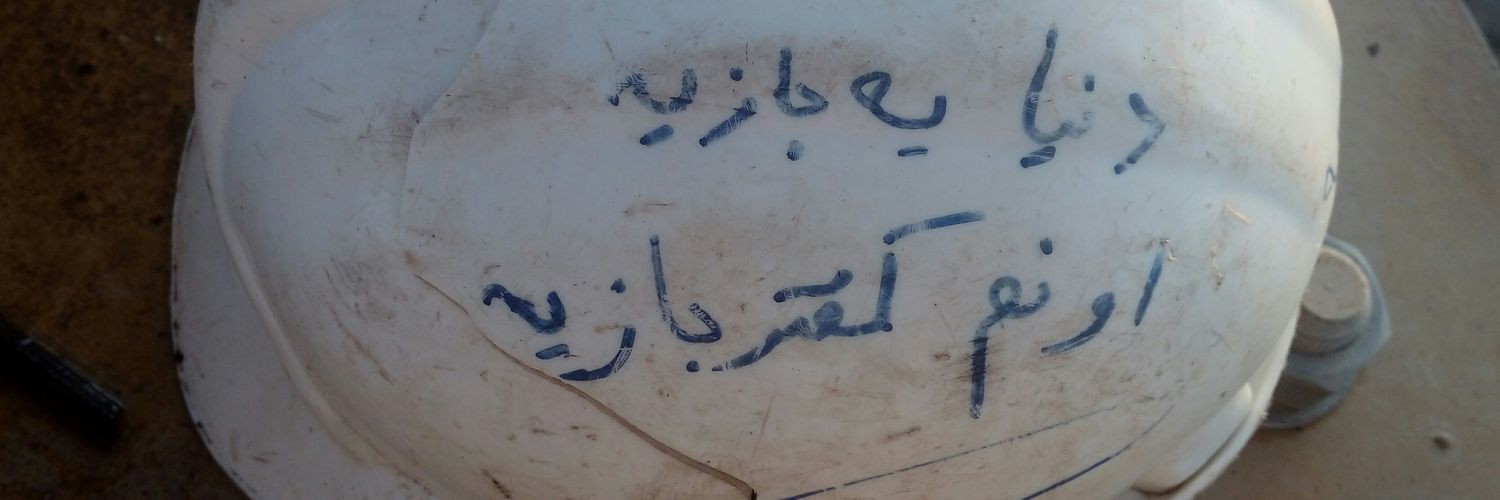 دنیا یه بازیه
اونم کفتر بازیه